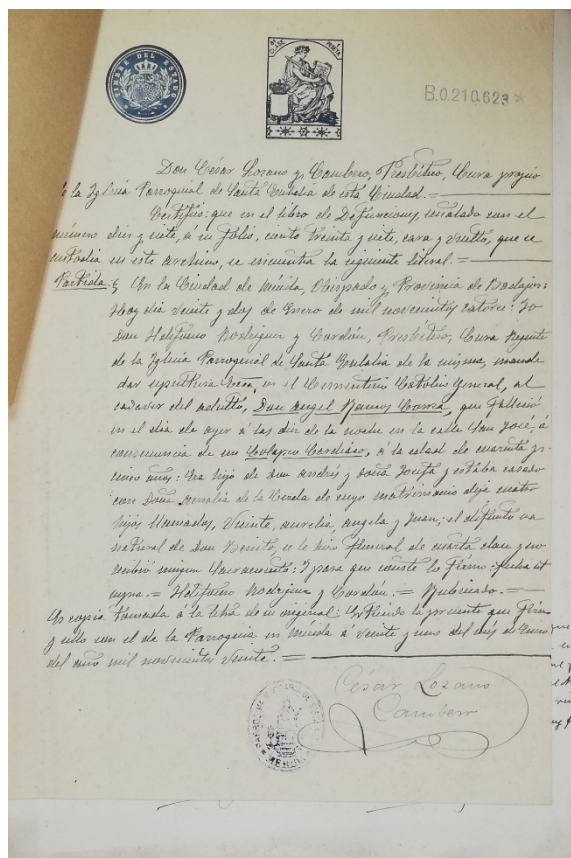 TIMBRE DEL ESTADO
8ª CLASE 1 PESETA
B.0.210.623
Don César Lozano y Cambero, Presbítero, Cura propio
de la Iglesia Parroquial de Santa Eulalia de esta Ciudad. =
Certifico: que en el libro de Defunciones señalado con el
número diez y siete, a su folio, ciento treinta y siete, cara y vuelto, que se
custodia en este archivo, se encuentra la siguiente literal. =
Partida: En la Ciudad de Mérida, Obispado y Provincia de Badajoz:
Hoy dia veinte y dos de Enero de mil novecientos catorce: Yo
Don Ildefonso Rodriguez y Cordón, Presbítero, Cura Regente
de la Iglesia Parroquial de Santa Eulalia de la misma, mandé
dar sepultura en el Cementerio Católico General, al
cadaver del adulto, Don Angel Ramos, que falleció
en el dia de ayer á las diez de la noche en la calle San José á
consecuencia de un Colapso Cardiaco, á la edad de cuarenta y
cinco años: Era hijo de Don Andrés y Doña Josefa y estaba casado
con Doña Amalia de la Cerda de cuyo matrimonio deja cuatro
hijos llamados, Vicente, Aurelia, Angela y Juan; el difunto era
natural de Don Benito, se le hizo funeral de cuarta clase y no
recibió ningun Sacramento: Y para que conste lo firmo: fecha ut
supra. = Ildefonso Rodriguez y Cordón. = Rubricado. =
Es copia tomada á la letra de su original: Extiendo la presente que firmo
y sello con el de la Parroquia en Mérida á veinte y uno del més de Enero
del año mil novecientos veinte. =
César Lozano
Cambero
MERIDA